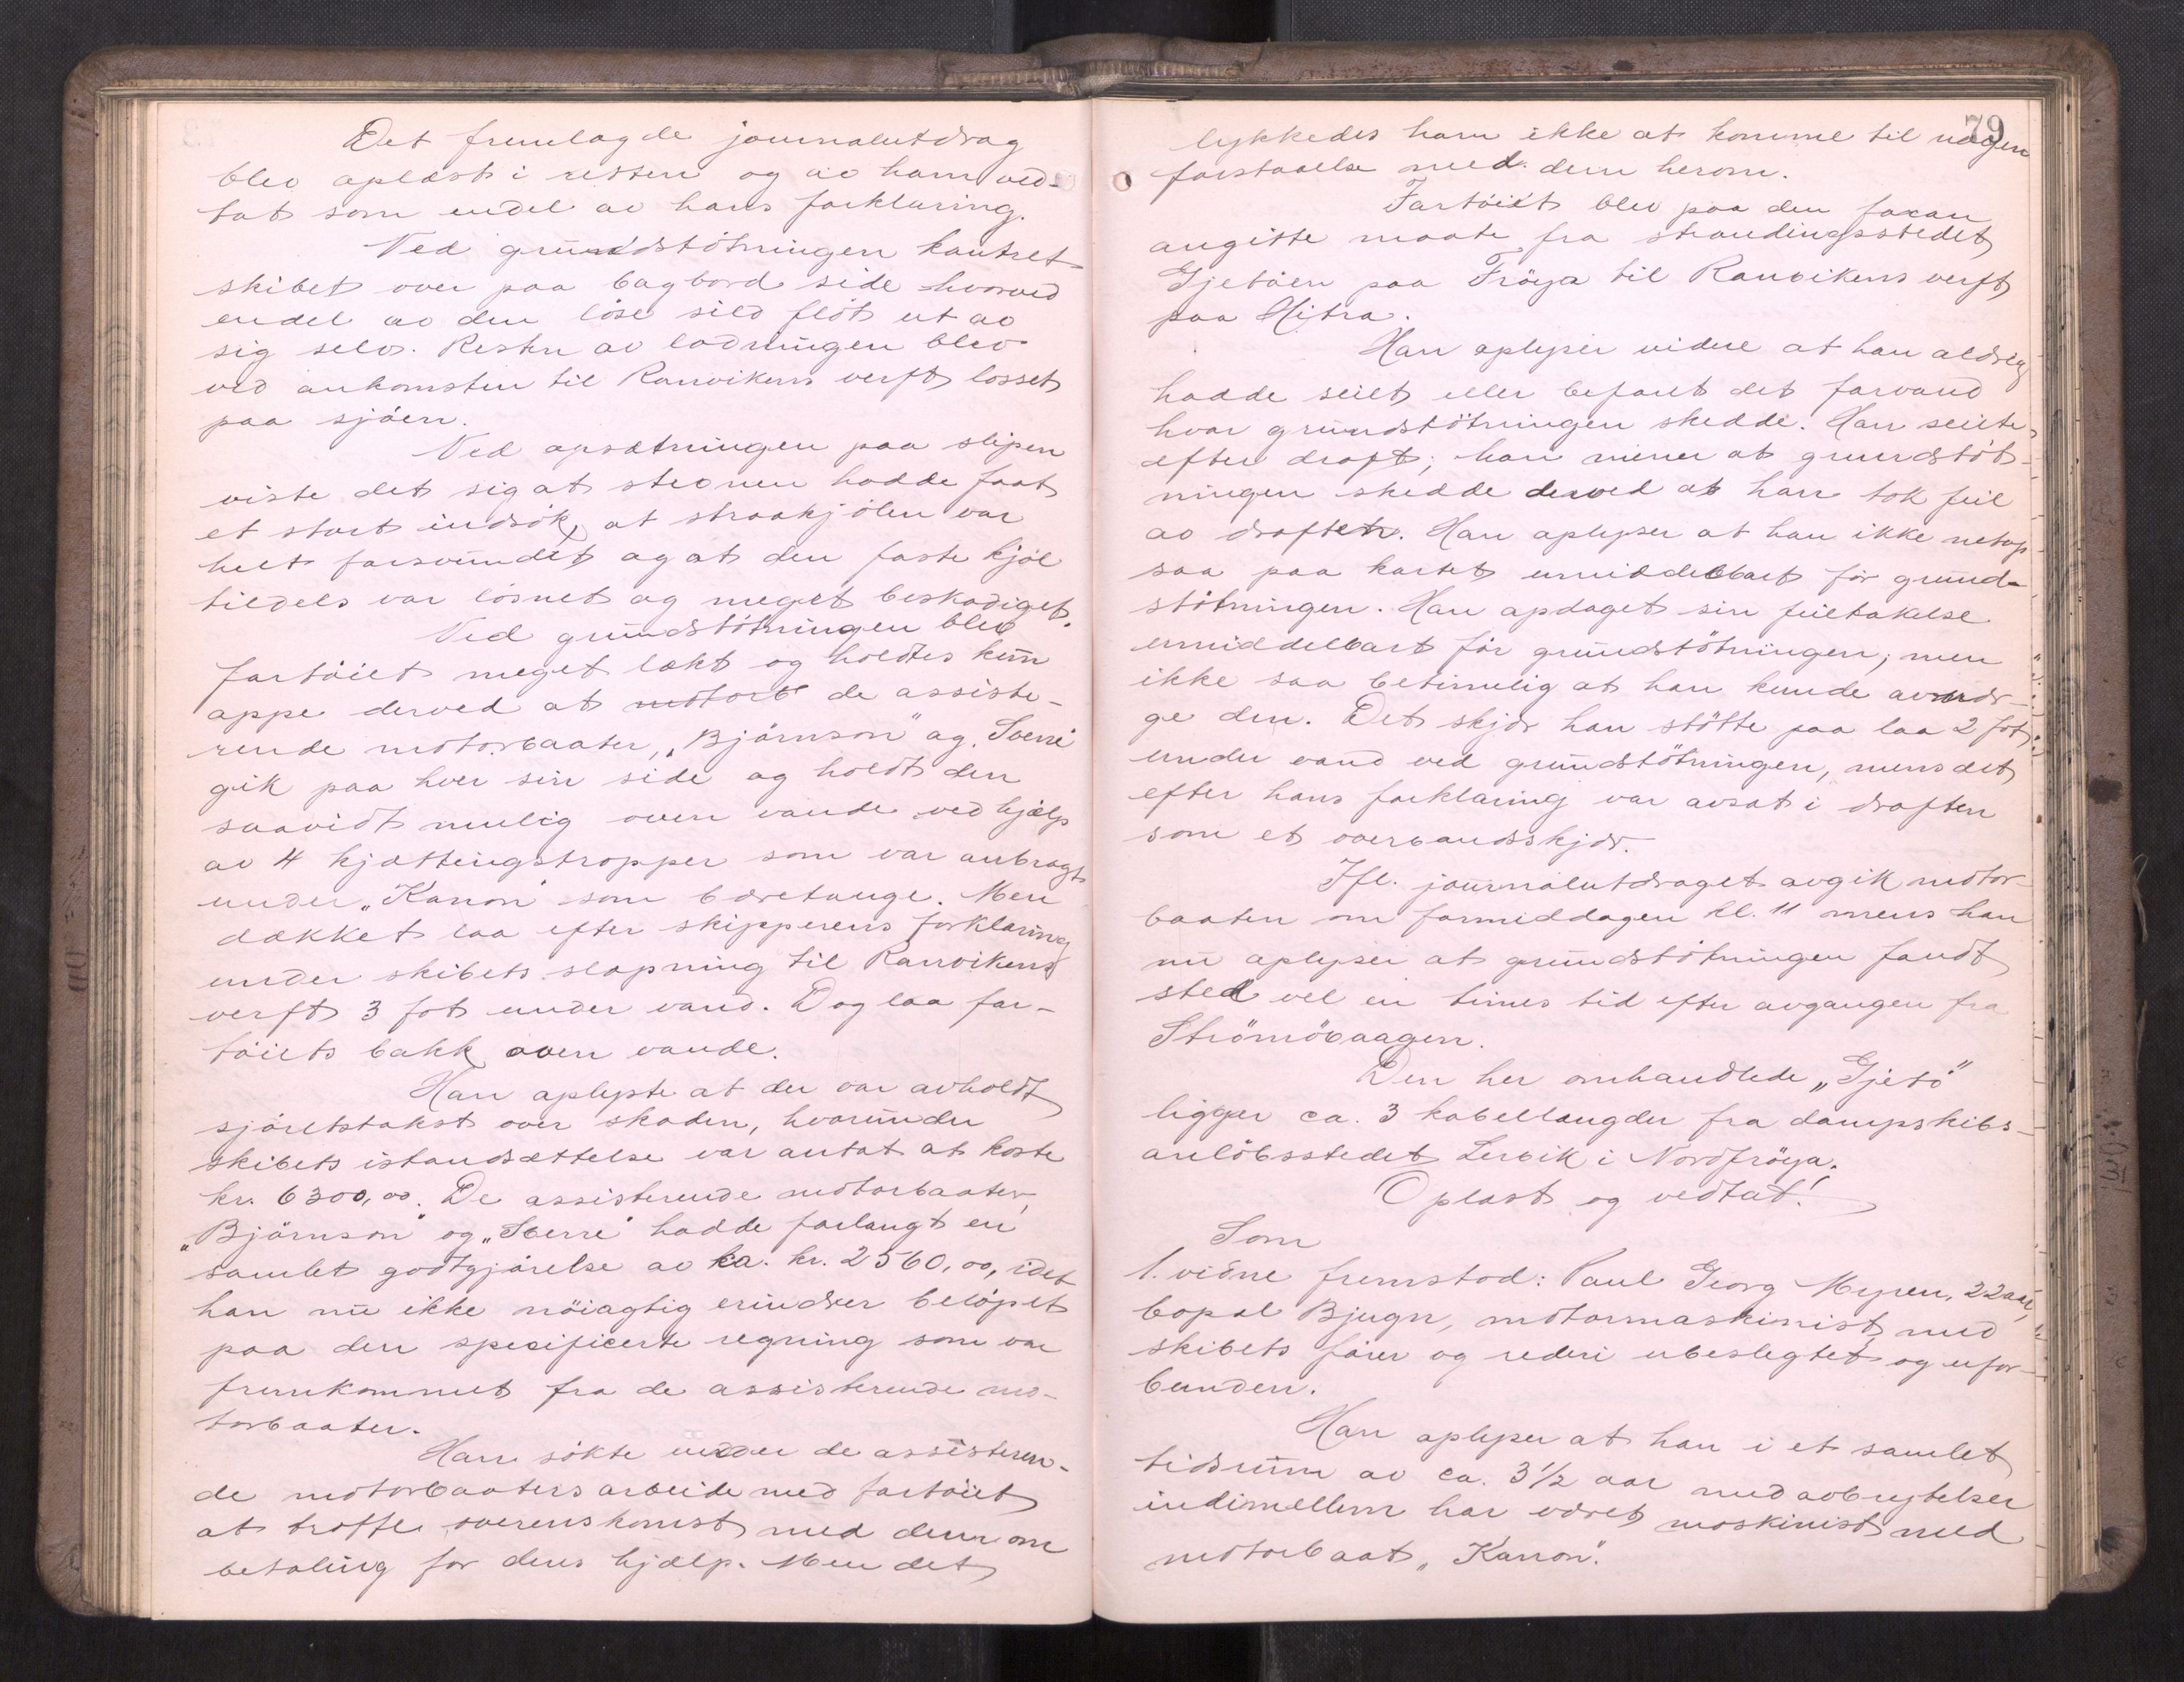 Det fremlagde journalutdrag
blev oplæst i retten og av ham ved-
tat som endel av hans forklaring.
Ved grundstötningen kantret
skibet over paa bagbord side hvorved
endel av den löse sild flöt ut av
sig selv. Resten av ladningen blev
ved ankomsten til Ranvikens verft losset
paa sjöen.
Ved opsætningen paa slipen
viste det sig at stevnen hadde faat
et stort indsök, at straakjölen var
helt forsvundet og at den faste kjöl
tildels var lösnet og meget beskadiget.
Ved grundstötningen blev
fartöiet meget lækt og holdtes kun
oppe derved at motorb de assiste-
rende motorbaater, "Björnson" og "Sverre"
gik paa hver sin side og holdt den
saavidt mulig oven vande ved hjælp
av 4 kjættingstropper som var anbragt
under "Kanon" som bæretauge. Men
dækket laa efter skipperens forklaring
under skibets slæpning til Ranvikens
verft 3 fot under vand. Dog laa far-
töiets bakk oven vande.
Han oplyste at der var avholdt
sjöretstakst over skaden, hvorunder
skibets istandsættelse var antat at koste
kr. 6300,00. De assisterende motorbaater,
"Björnson" og "Sverre" hadde forlangt en
samlet godtgjörelse av ca. kr. 2560,00, idet
han nu ikke nöiagtig erindrer belöpet
paa den specificerte regning som var
fremkommet fra de assisterende mo-
torbaater.
Han sökte under de assisteren-
de motorbaaters arbeide med fartöiet
at træffe overenskomst med dem om
betaling for dens hjælp. Men det
79
lykkedes ham ikke at komme til nogen
forstaaelse med dem herom.
Fartöiet blev paa den foran
angitte maate fra strandingsstedet
Gjetöen paa Fröya til Ranvikens verft
paa Hitra.
Han oplyser videre at han aldrig
hadde seilt eller befaret det farvand
hvor grundstötningen skedde. Han seilte
efter draft; han mener at grundstöt-
ningen skedde derved at han tok feil
av draften. Han oplyser at han ikke netop
saa paa kartet umiddelbart för grund-
stötningen. Han opdaget sin feiltakelse
umiddelbart för grundstötningen; men
ikke saa betimelig at han kunde avær-
ge den. Det skjær han stötte paa laa 2 fot
under vand ved grundstötningen, mens det
efter hans forklaring var avsat i draften
som et overvandsskjær.
Ifl. journalutdraget avgik motor-
baaten om formiddagen kl. 11 mens han
nu oplyser at grundstötningen fandt
sted vel en times tid efter avgangen fra
Strömövaagen.
Den her omhandlede "Gjetö"
ligger ca. 3 kabellængder fra dampskibs-
anlöbsstedet Lervik i Nordfröya.
Oplæst og vedtat!
Som
1. vidne fremstod: Paul Georg Myren, 22 aar,
bopæl Bjugn, motormaskinist, med
skibets förer og rederi ubeslegtet og ufor-
bunden.
Han oplyser at han i et samlet
tidsrum av ca. 3½ aar med avbrytelser
indimellem har været maskinist med
motorbaat "Kanon".